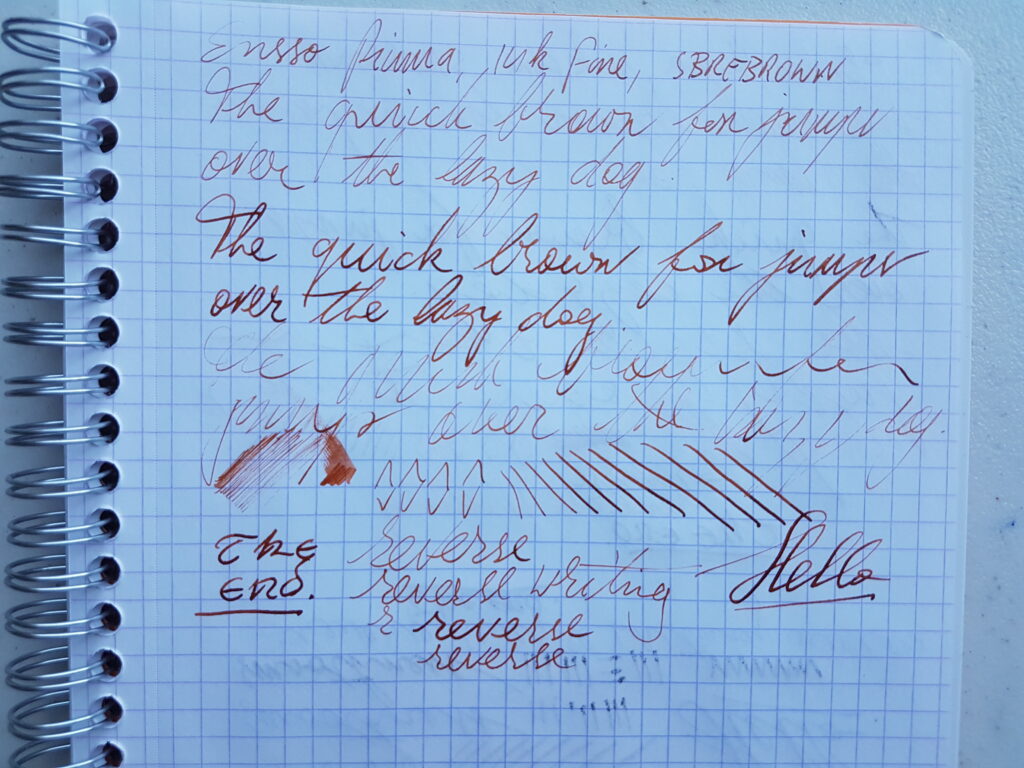 Ensso Piuma, 14k fine, SBREBROWN
The quick brown fox jumps
over the lazy dog.
The quick brown fox jumps
over the lazy dog.
The quick brown fox
jumps over the lazy dog.
THE
END.
reverse
reverse writing
r reverse
reverse
Hello